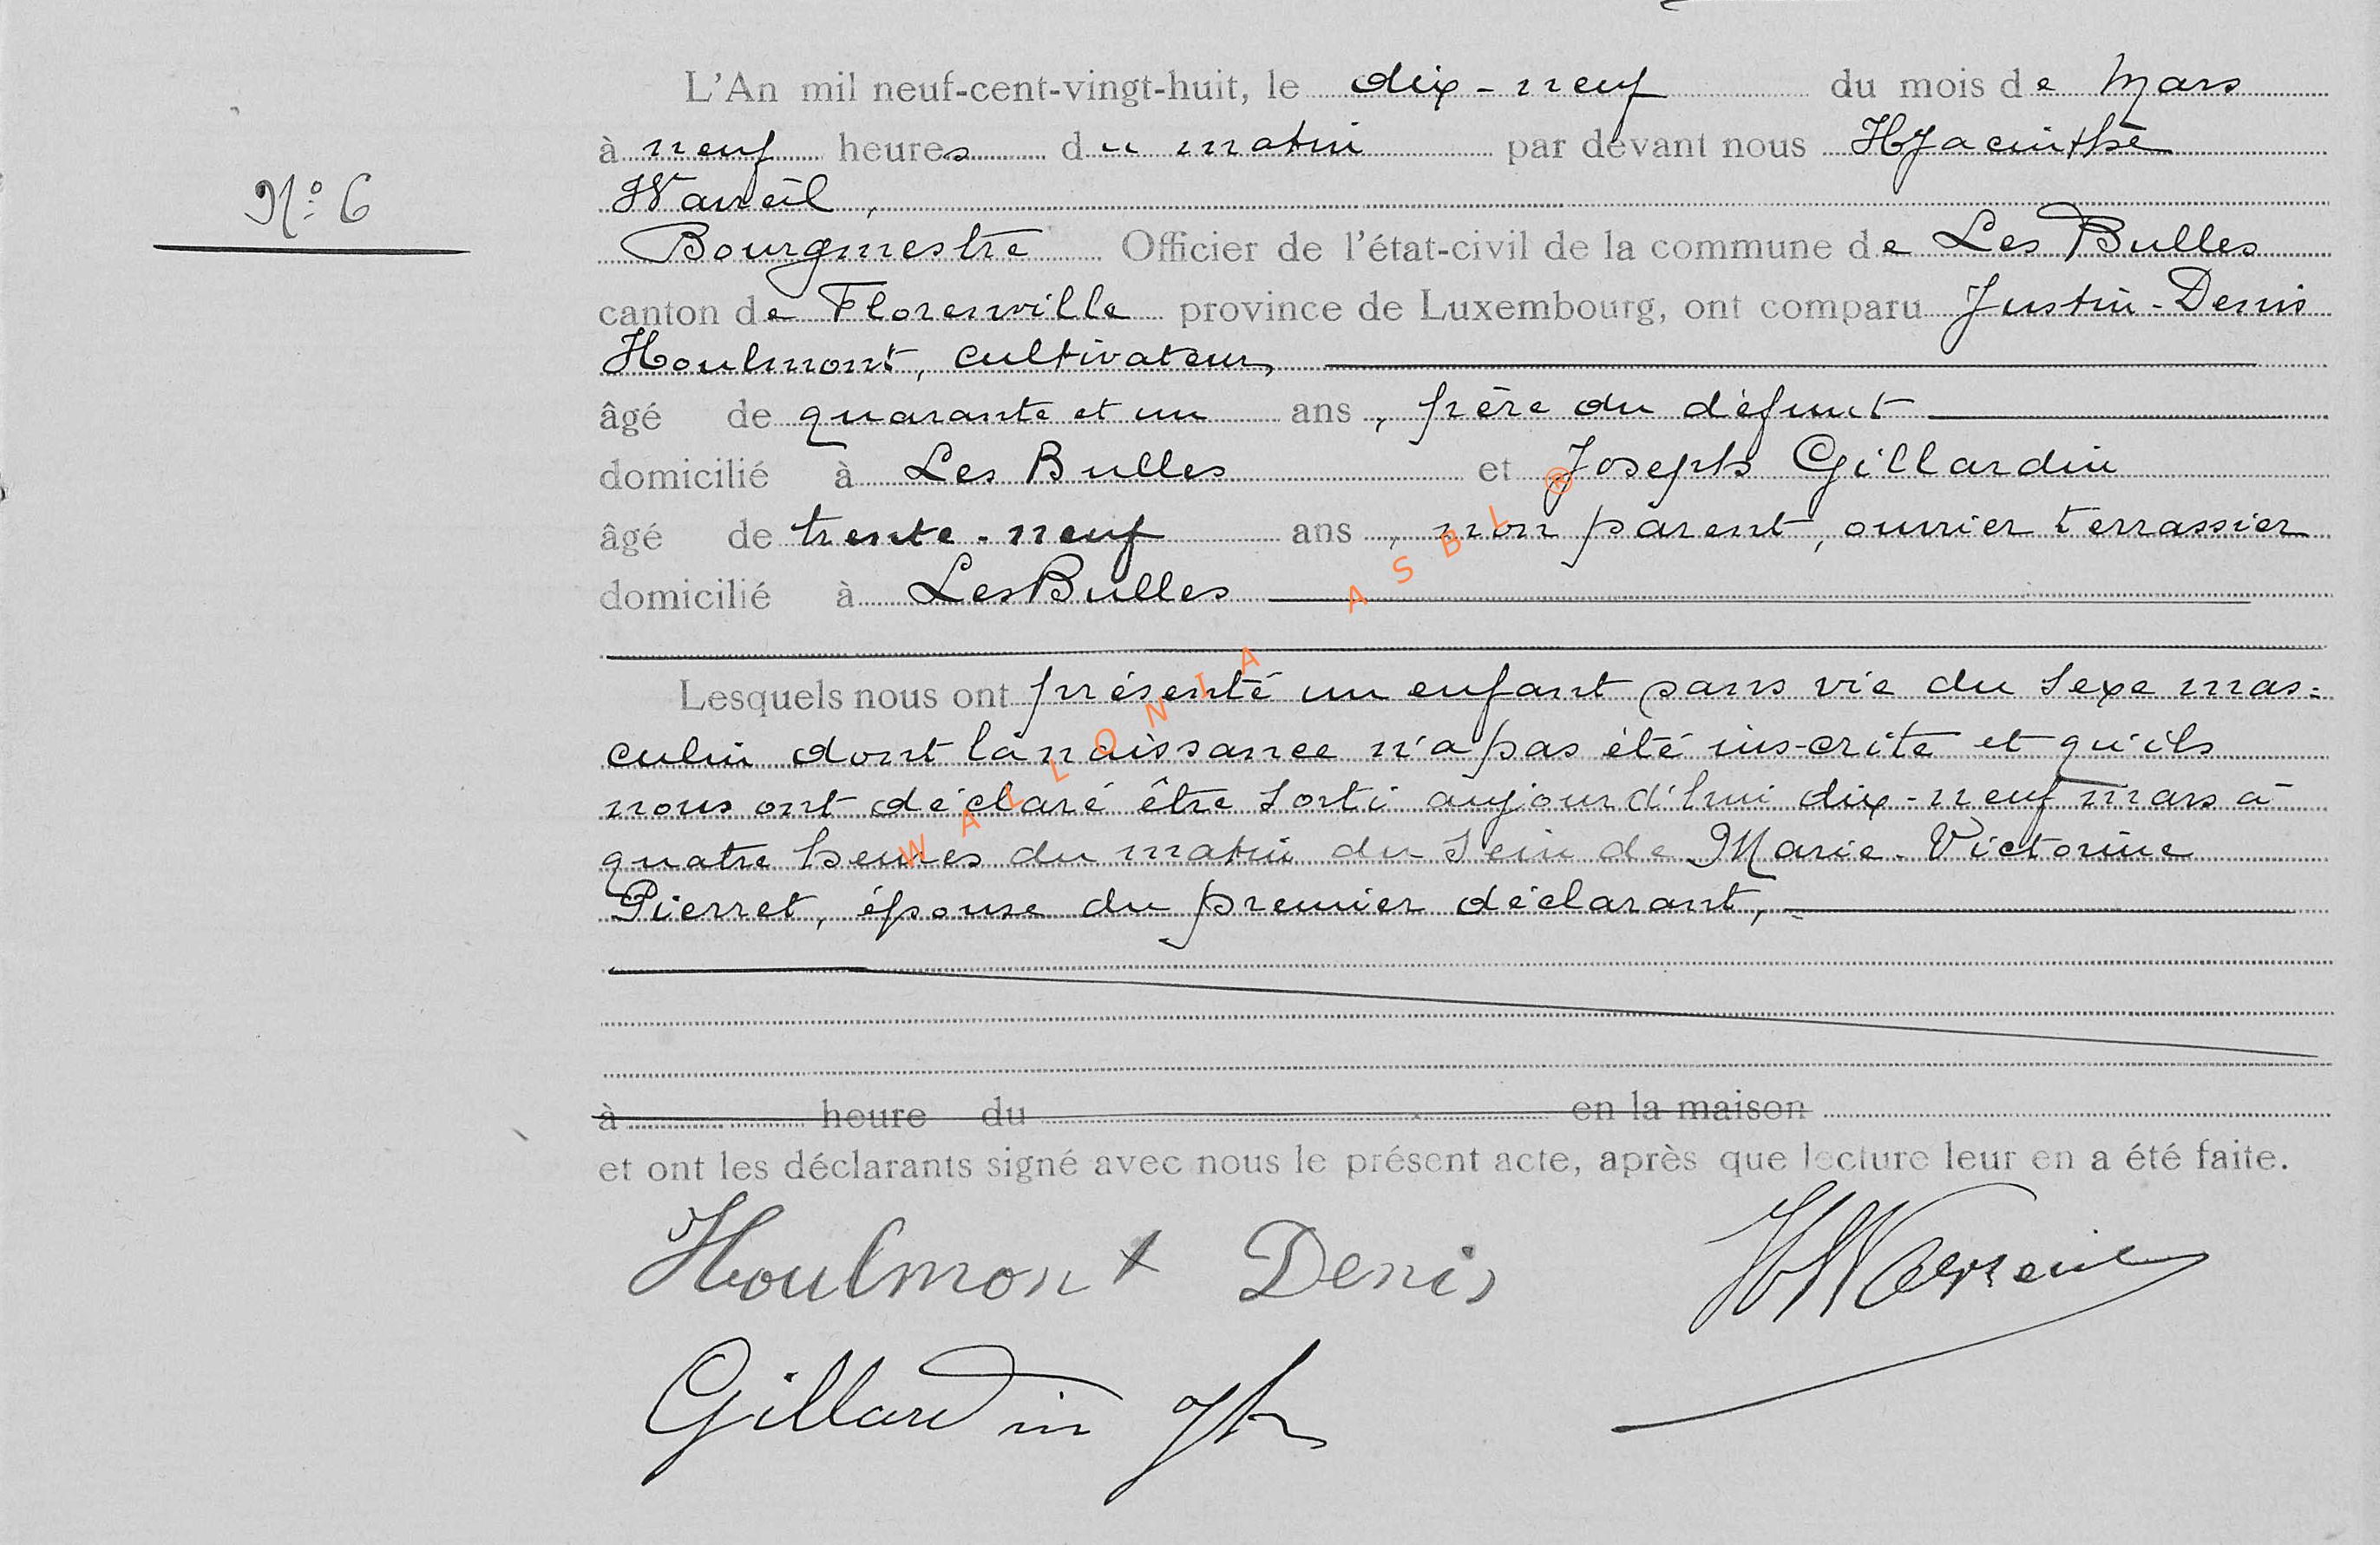 L'An mil neuf-cent-vingt-huit, le dix-neuf du mois de Mars
à neuf heures du matin par devant nous Hyacinthe
N° 6
Bourgmestre Officier de l'état-civil de la commune de Les Bulles
canton de Florenville province de Luxembourg, ont comparu Justin-Denis
Houlmont, cultivateur,
âgé de quarante et un ans, père du défunt
domicilié à Les Bulles et Joseph Gillardin
âgé de trente-neuf ans, non parent, ouvrier terrassier
domicilié à Les Bulles
Lesquels nous ont présenté un enfant sans vie du sexe mas=
culin dont la naissance n'a pas été ins-crite et qu'ils
nous ont déclaré être sorti aujourd'hui dix-neuf mars à
quatre heures du matin du sein de Marie-Victorine
Pierret, épouse du premier déclarant,
à heure du en la maison
et ont les déclarants signé avec nous le présent acte, après que lecture leur en a été faite.
Houlmont Denis
Gillardin Jh
WALLONIA ASBL ®